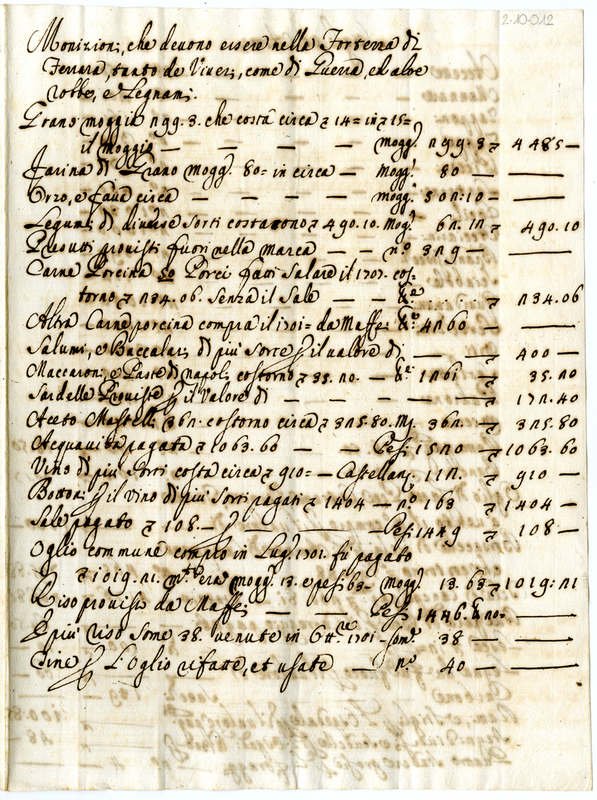 2-10-012
Monizioni, che devono essere nella Fortezza di
Ferrara, tanto de Viveri, come di Guerra, ed altre
robbe, e Legnami.
Grano moggia n99.3. che costa circa 14= in 15=
il moggio — — — — mogg. n99.3 4485 —
Farina di Grano mogg. 80= in circa — Mogg. 80 — —
Orzo, e fava circa — — — — mogg. 50n:10 — —
Legumi di diverse sorti costarono 490.10. Mog. 6n. 1n 490.10
Presutti provisti fuori nella marca — — n.º 3n9 — —
Carne Porcina 50 Porci fatti Salare il 1701. cos-
torno n34.06. Senza il Sale — — n34.06
Altra Carne porcina compra il 1701= da Maffei 4n60 — —
Salumi, e Baccalari di più sorte il valore di — — 400 —
Maccaroni, e Paste di napoli costorno 35.n0. — 1n61 — 35.n0
Sardelle Proviste il Valore di — — — — 17n.40
Aceto Mastelli 36n. costorno circa 3n5.80. M. 36n. 3n5.80
Acquavita pagata 1063.60 — — Pesi 15n0 — 1063.60
Vino di più sorti costa circa 910= — Castellari 11n. 910 —
Bottoni il vino di più sorti pagati 1404 — n.º 163 1404 —
Sale pagato 108.— — Pesi 1449 108 —
Oglio commune compro in Lug. 1701. fu pagato
1019.n1. era mogg. 13. e pesi 63— mogg. 13.63 1019:n1
Riso provisto da Maffei — — — Pesi 1446. n0= —
E più riso some 38. venute in 1701 — som. 38 — —
Tine L'oglio rifatte, et usate — n.º 40 — —